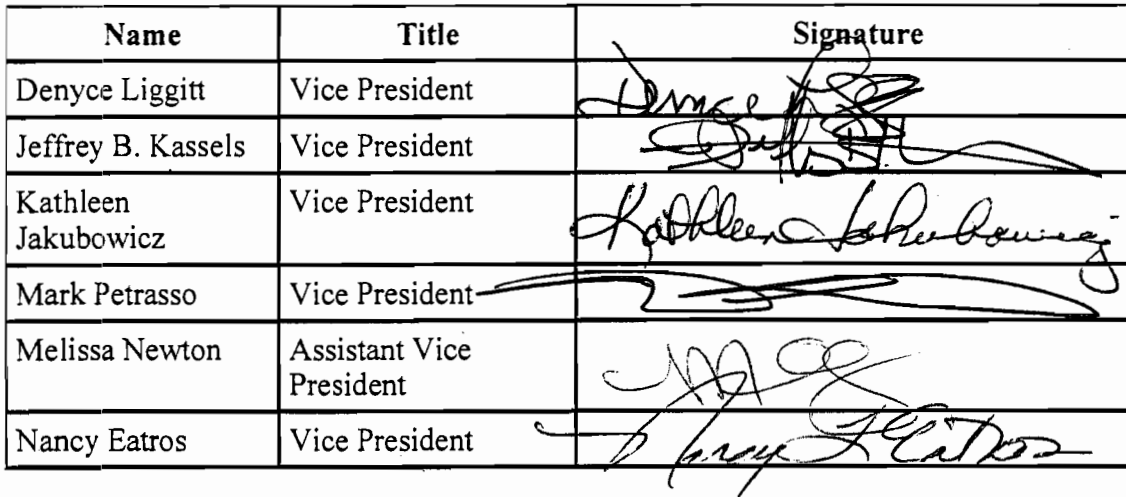 Name Title Signature
Denyce Liggitt Vice President Denyce
Jeffrey B. Kassels Vice President
Kathleen Vice President Kathleen Jakubowicz
Jakubowicz
Mark Petrasso Vice President
Melissa Newton Assistant Vice
President
Nancy Eatros Vice President Nancy L Eatros